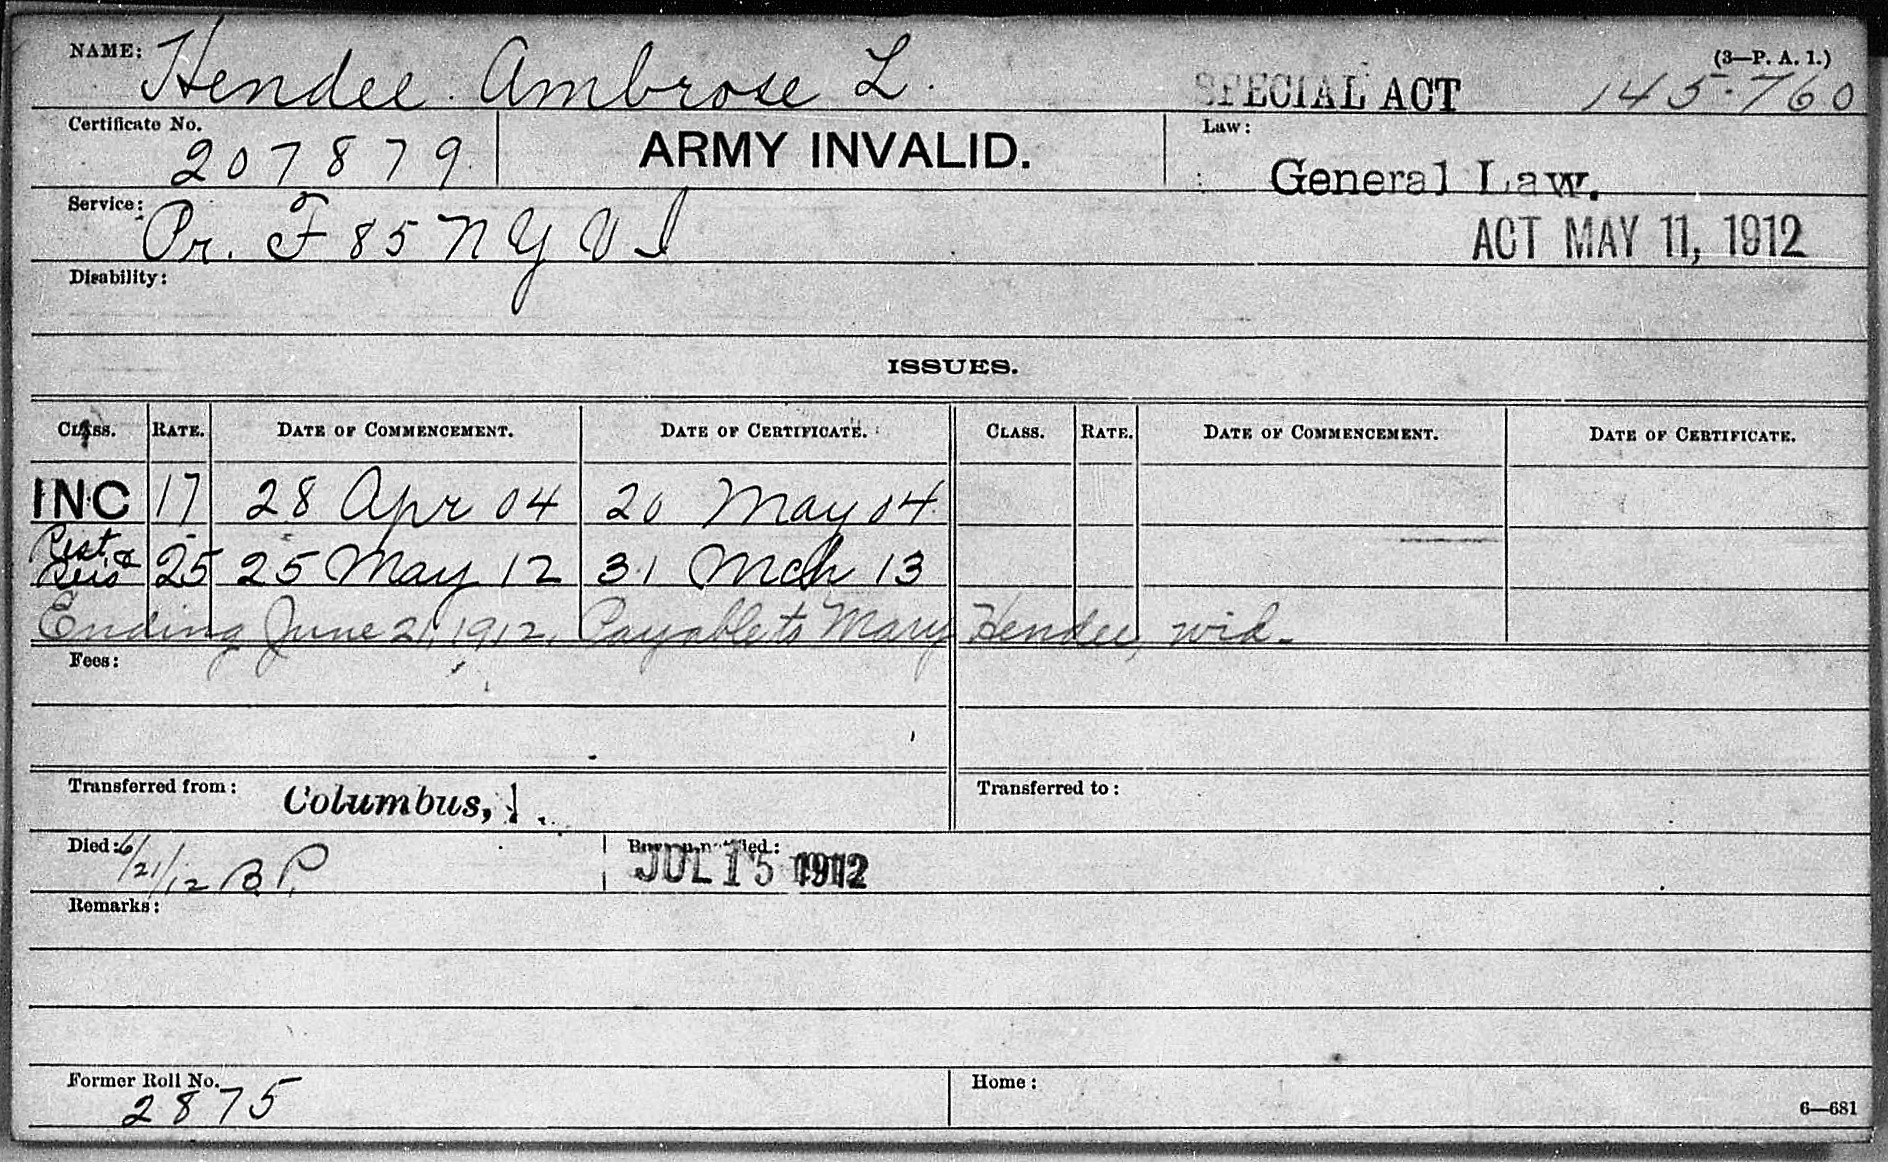 NAME: Hendee Ambrose L.
(3—P. A. 1.)
SPECIAL ACT 145-760
Certificate No. 207879
ARMY INVALID.
Law: General Law.
Service: Pr. F 85 N Y V I
ACT MAY 11, 1912
Disability:
ISSUES.
CLASS. RATE. DATE OF COMMENCEMENT. DATE OF CERTIFICATE. CLASS. RATE. DATE OF COMMENCEMENT. DATE OF CERTIFICATE.
INC 17 28 Apr 04 20 May 04
Rest & Reis 25 25 May 12 31 Mch 13
Ending June 21, 1912, Payable to Mary Hendee, wid.
Fees:
Transferred from: Columbus,
Transferred to:
Died: 6/21/12 B.P.
JUL 15 1912
Remarks:
Former Roll No. 2875
Home:
6—681